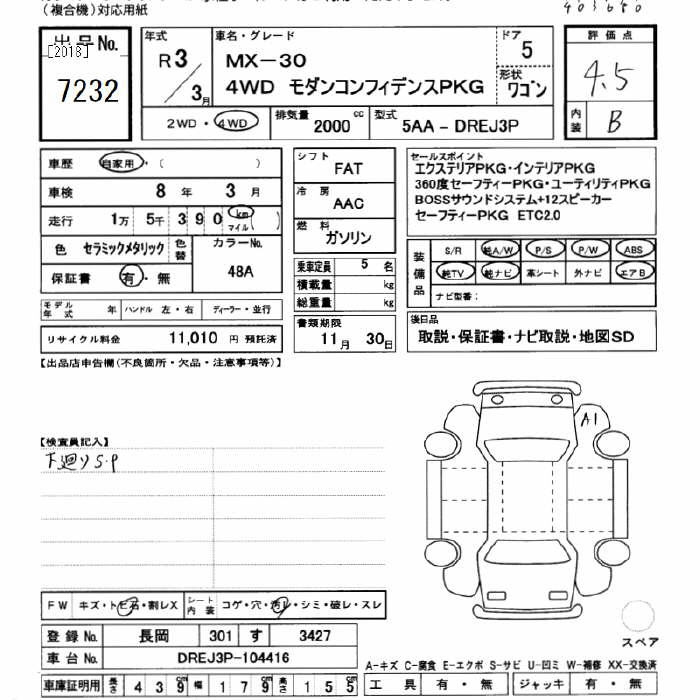 （複合機）対応用紙
403680
出品No.
[2018]
7232
年式
R 3
3月
車名・グレード
MX-30
4WD モダンコンフィデンスPKG
ドア
5
形状
ワゴン
評価点
4.5
内装
B
2WD・4WD
排気量
2000 cc
型式
5AA-DREJ3P
車歴 自家用・( )
車検 8年 3月
走行 1万 5千 3 9 0 km マイル ( )
色 セラミックメタリック 色替
カラーNo.
48A
保証書 有・無
モデル年式 年 ハンドル 左・右 ディーラー・並行
リサイクル料金 11,010 円 預託済
シフト
FAT
冷房
AAC
燃料
ガソリン
乗車定員 5 名
積載量 kg
総重量 kg
書類期限
11月 30日
セールスポイント
エクステリアPKG・インテリアPKG
360度セーフティーPKG・ユーティリティPKG
BOSSサウンドシステム+12スピーカー
セーフティーPKG ETC2.0
装備品
S/R 純A/W P/S P/W ABS
純TV 純ナビ 革シート 外ナビ エアB
ナビ型番：
後日品
取説・保証書・ナビ取説・地図SD
【出品店申告欄(不良箇所・欠品・注意事項等)】
【検査員記入】
下廻りS.P
A1
FW キズ・トビ石・割レX シート内装 コゲ・穴・汚レ・シミ・破レ・スレ
登録No. 長岡 301 す 3427
車台No. DREJ3P-104416
車庫証明用 長さ 4 3 9 幅 1 7 9 高さ 1 5 5
スペア
A-キズ C-腐食 E-エクボ S-サビ U-凹ミ W-補修 XX-交換済
工具 有・無 ジャッキ 有・無